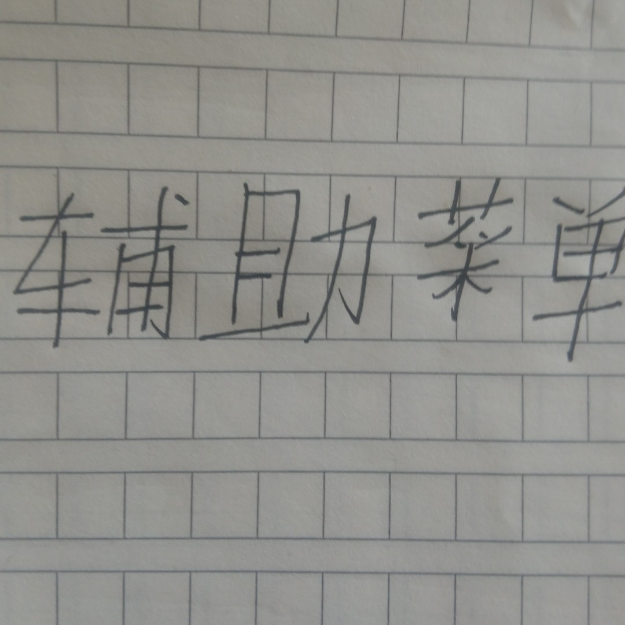 辅助菜单